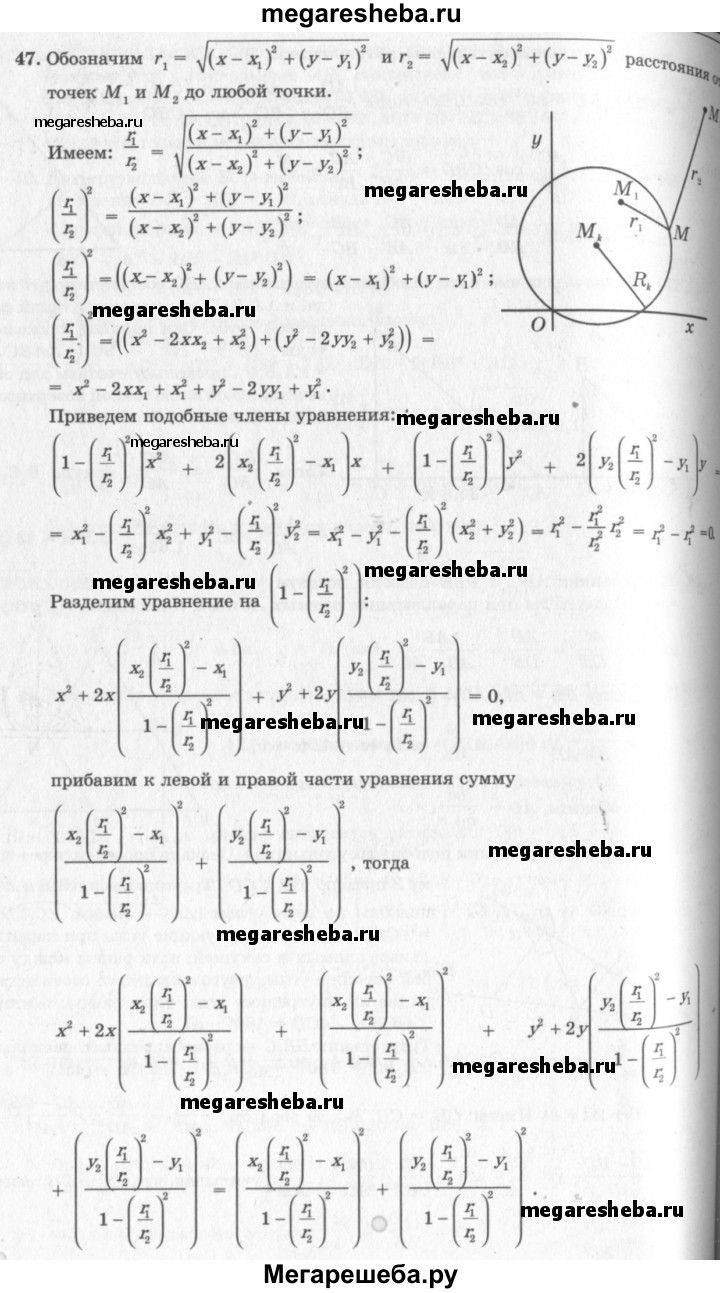 megaresheba.ru
47. Обозначим r₁ = √((x – x₁)² + (y – y₁)²) и r₂ = √((x – x₂)² + (y – y₂)²) расстояния от
точек M₁ и M₂ до любой точки.
megaresheba.ru
Имеем: r₁/r₂ = √(((x – x₁)² + (y – y₁)²)/((x – x₂)² + (y – y₂)²)) ;
megaresheba.ru
(r₁/r₂)² = ((x – x₁)² + (y – y₁)²)/((x – x₂)² + (y – y₂)²) ;
(r₁/r₂)² = ((x – x₂)² + (y – y₂)²) = (x – x₁)² + (y – y₁)² ;
megaresheba.ru
(r₁/r₂)² = ((x² – 2xx₂ + x₂²) + (y² – 2yy₂ + y₂²)) =
= x² – 2xx₁ + x₁² + y² – 2yy₁ + y₁² .
y
M₁
r₁
r₂
M
Mₖ
Rₖ
O
x
Приведем подобные члены уравнения:
megaresheba.ru
megaresheba.ru
(1 – (r₁/r₂)²)x² + 2(x₂(r₁/r₂)² – x₁)x + (1 – (r₁/r₂)²)y² + 2(y₂(r₁/r₂)² – y₁)y =
= x₁² – (r₁/r₂)² x₂² + y₁² – (r₁/r₂)² y₂² = x₁² – y₁² – (r₁/r₂)² (x₂² + y₂²) = r₁² – r₁²/r₂² r₂² = r₁² – r₁² = 0.
megaresheba.ru
megaresheba.ru
Разделим уравнение на (1 – (r₁/r₂)²):
x² + 2x((x₂(r₁/r₂)² – x₁)/(1 – (r₁/r₂)²)) + y² + 2y((y₂(r₁/r₂)² – y₁)/(1 – (r₁/r₂)²)) = 0,
megaresheba.ru
megaresheba.ru
прибавим к левой и правой части уравнения сумму
((x₂(r₁/r₂)² – x₁)/(1 – (r₁/r₂)²))² + ((y₂(r₁/r₂)² – y₁)/(1 – (r₁/r₂)²))², тогда
megaresheba.ru
megaresheba.ru
x² + 2x (x₂(r₁/r₂)² – x₁)/(1 – (r₁/r₂)²) + ((x₂(r₁/r₂)² – x₁)/(1 – (r₁/r₂)²))² + y² + 2y (y₂(r₁/r₂)² – y₁)/(1 – (r₁/r₂)²)
megaresheba.ru
megaresheba.ru
+ ((y₂(r₁/r₂)² – y₁)/(1 – (r₁/r₂)²))² = ((x₂(r₁/r₂)² – x₁)/(1 – (r₁/r₂)²))² + ((y₂(r₁/r₂)² – y₁)/(1 – (r₁/r₂)²))²
megaresheba.ru
megaresheba.ru
Мегарешеба.ру